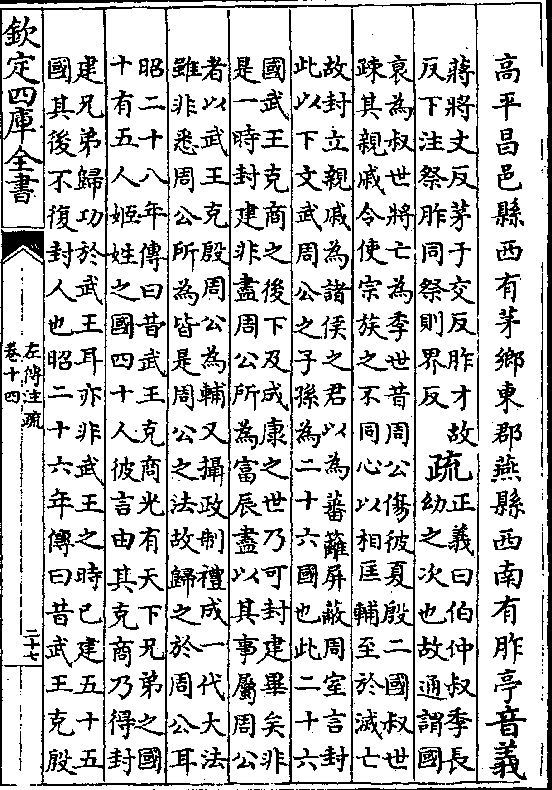 高平昌邑縣西有茅鄉東郡燕縣西南有胙亭音義
蔣將丈反茅于交反胙才故
反下注祭胙同祭則界反
疏
正義曰伯仲叔季長
幼之次也故通謂國
衰為叔世將亡為季世昔周公傷彼夏殷二國叔世
疎其親戚令使宗族之不同心以相匡輔至於滅亡
故封立親戚為諸侯之君以為蕃籬屏蔽周室言封
此以下文武周公之子孫為二十六國也此二十六
國武王克商之後下及成康之世乃可封建畢矣非
是一時封建非盡周公所為富辰盡以其事屬周公
者以武王克殷周公為輔又攝政制禮成一代大法
雖非悉周公所為皆是周公之法故歸之於周公耳
昭二十八年傳曰昔武王克商光有天下兄弟之國
十有五人姬姓之國四十人彼言由其克商乃得封
建兄弟歸功於武王耳亦非武王之時已建五十五
國其後不復封人也昭二十六年傳曰昔武王克殷
欽定四庫全書
左傳注疏
卷十四
二十七